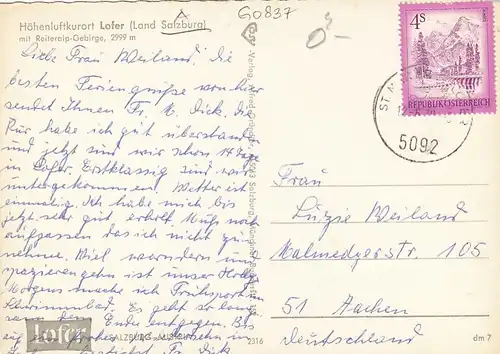 Höhenluftkurort Lofer (Land Salzburg)
mit Reiteralp-Gebirge, 2999 m
60837
Liebe Frau Weiland. Die
besten Feriengrüße von hier
sendet Ihnen Fr. M. Dick. Die
Kur habe ich gut überstanden
und jetzt sind wir schon 14 Tage
in Lofer. Erstklassig sind wir
untergekommen. Wetter ist
einmalig. Ich habe mich bis
jetzt sehr gut erholt. Muß noch
aufpassen das ich nicht zu
nehme. Viel wandern und
spazierengehn ist unser Hobby
Morgens mache ich Frühsport im
Schwimmbad. Es geht so lang
dem Ende entgegen. Bis
Fr. Dick
4S
REPUBLIK ÖSTERREICH
5092
Frau
Luzie Weiland
Malmedyerstr. 105
51 Aachen
Deutschland
Lofer
SALZBURG-AUSTRIA
2316
dm 7